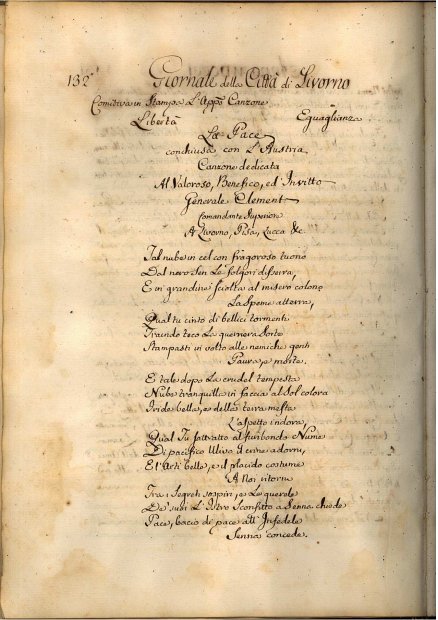 132 Giornale della Città di Livorno
Comitiva in Stampa L'App. Canzone
Libertà Eguaglianza
La Pace
conchiusa con L'Austria
Canzone dedicata
Al Valoroso, Benefico, ed Invitto
Generale Clement
Comandante Superiore
A Livorno, Pisa, Lucca &c.
Tal nube in ciel con fragoroso tuono
Dal nero sen Le folgori disserra,
E in grandine sciolta al misero colono
La speme atterra,
Qual tu cinto di bellici tormenti
Traendo teco La guerriera sorte
Stampasti in volto alle nemiche genti
Paura, e morte.
E tale dopo La crudel tempesta
Nube tranquilla in faccia al Sol colora
Iride bella, e della terra mesta
L'aspetto indora,
Qual Tu sottratto al furibondo Nume
Di pacifico Ulivo il crine adorni,
E l'Arti belle, e il placido costume
A Noi ritorni
Tra i Segreti sospiri, e Le querele
De' suoi L'Istro Sconfitto a Senna chiede
Pace, bacio di pace all'Infedele
Senna concede.